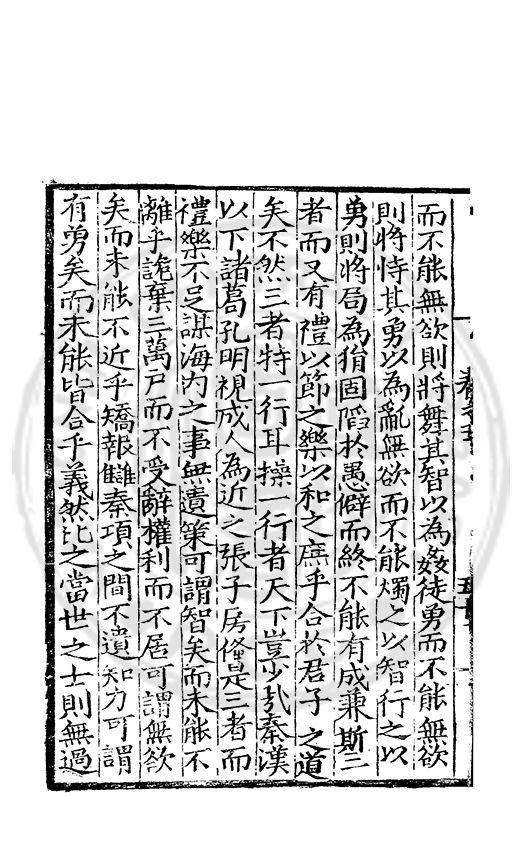 而不能無欲則將舞其智以為姦徒勇而不能無欲
則將恃其勇以為亂無欲而不能燭之以智行之以
勇則將局為狷固䧟於愚僻而終不能有成兼斯三
者而又有禮以節之樂以和之庶乎合於君子之道
矣不然三者特一行耳操一行者天下豈少㢤秦漢
以下諸葛孔明視成人為近之張子房僅是三者而
禮樂不足謀海内之事無遺策可謂智矣而未能不
離乎詭棄三萬戸而不受辭權利而不居可謂無欲
矣而未能不近乎矯報讎秦項之間不遺知力可謂
有勇矣而未能皆合乎義然比之當世之士則無過